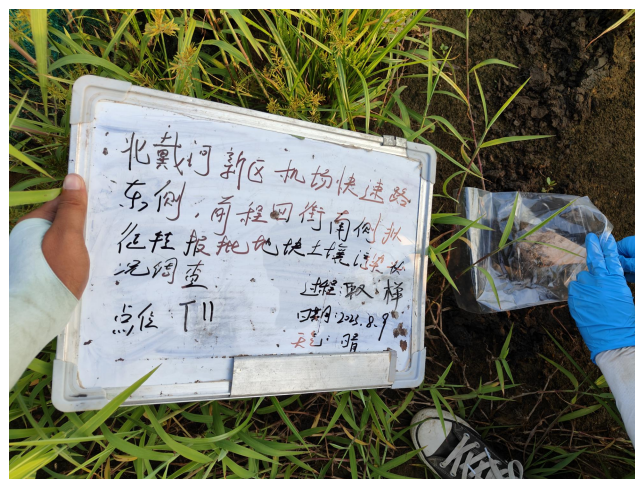 北戴河新区机场快速路
东侧、前程四街南侧拟
征转报批地块土壤污染状
况调查
过程:取样
点位:T11
日期:2023.8.9
天气:晴